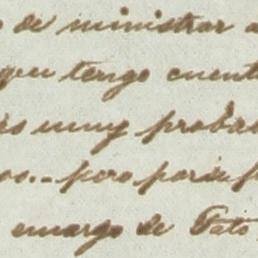 de ministrar a
que tengo cuent
es muy probab
os... pero para p
amargo de Tato